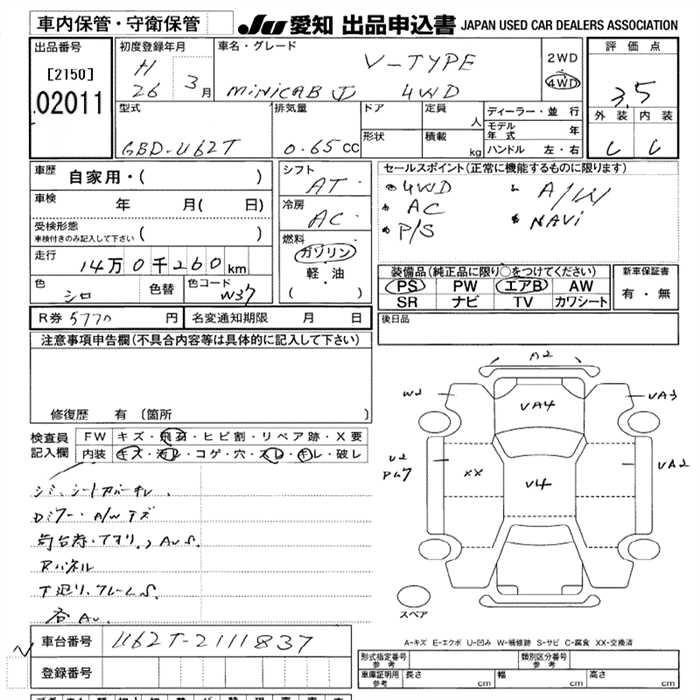 車内保管・守衛保管
JU 愛知 出品申込書 JAPAN USED CAR DEALERS ASSOCIATION
出品番号
[2150]
02011
初度登録年月
H 26 3月
車名・グレード
V-TYPE
MINICAB 4WD
2WD
4WD
評価点
3.5
外装 内装
C C
型式
GBD-U62T
排気量
0.65cc
ドア
形状
定員 人
積載 kg
ディーラー・並行
モデル年式 年
ハンドル 左・右
車歴 自家用・( )
車検 年 月( 日)
受検形態
車検付きのみ記入して下さい ( )
走行 14万0千260km
色 シロ 色替 色コード W37
シフト
AT
冷房
AC
燃料
ガソリン
軽・油
( )
セールスポイント(正常に機能するものに限ります)
4WD A/W
AC NAVi
P/S
装備品(純正品に限り○をつけてください)
PS PW エアB AW
SR ナビ TV カワシート
新車保証書
有・無
R券 5770 円 名変通知期限 月 日
後日品
注意事項申告欄(不具合内容等は具体的に記入して下さい)
修復歴 有 (箇所 )
検査員記入欄
FW キズ・飛石・ヒビ割・リペア跡・X要
内装 キズ・汚レ・コゲ・穴・スレ・キレ・破レ
シミ、シートカバーキレ、
Dミラー・A/Wキズ
荷台荷・アオリ、AUS.
Rパネル
下廻り、フレームS.
各AU.
A2
W2
VA4
VA3
U2
XX
V4
VA2
スペア
A-キズ E-エクボ U-凹み W-補修跡 S-サビ C-腐食 XX-交換済
車台番号 U62T-2111837
登録番号
形式指定番号 参考
類別区分番号 参考
車庫証明用 参考 長さ cm 幅 cm 高さ cm